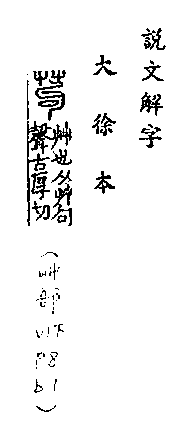 説文解字
大徐本
茍
艸也从艸句
聲古厚切
(艸部 V1下 P8 b1)